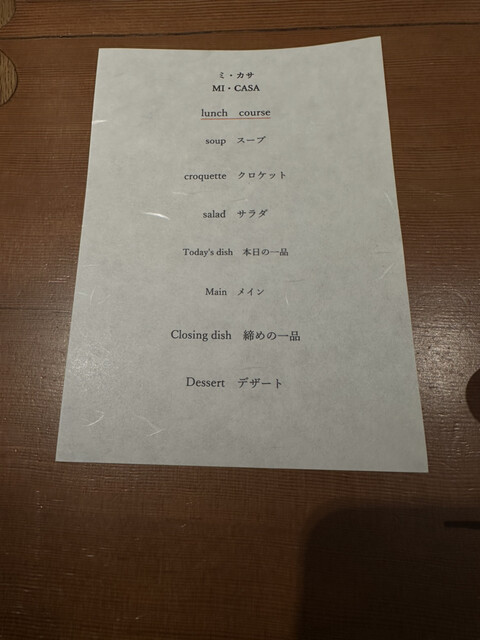 ミ・カサ
MI・CASA
lunch course
soup スープ
croquette クロケット
salad サラダ
Today's dish 本日の一品
Main メイン
Closing dish 締めの一品
Dessert デザート